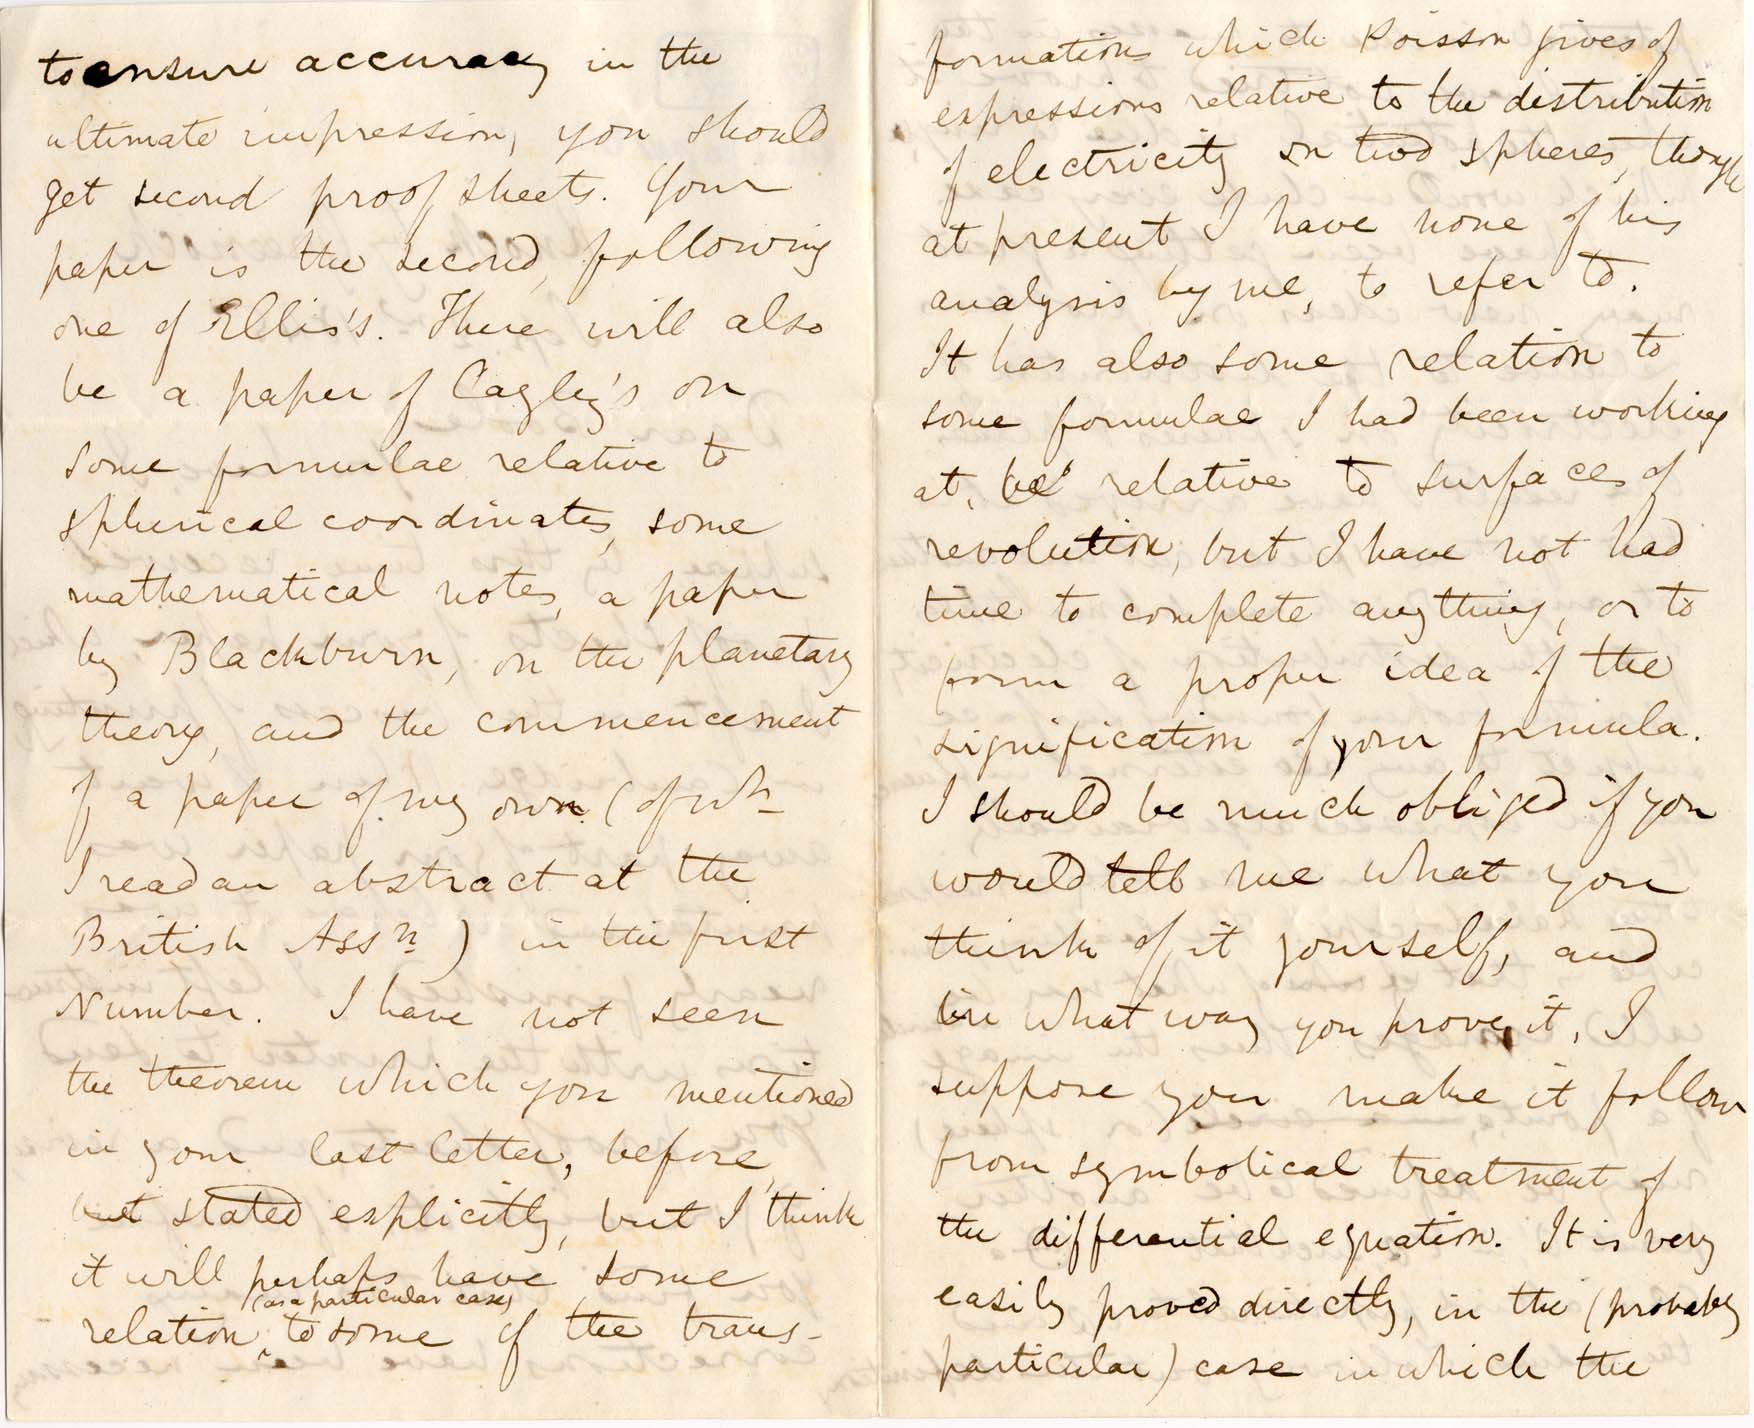 to ensure accuracy in the
ultimate impression, you should
get second proof sheets. Your
paper is the second, following
one of Ellis's. There will also
be a paper of Cayley's on
some formulae relative to
spherical coordinates, some
mathematical notes, a paper
by Blackburn, on the planetary
theory, and the commencement
of a paper of my own (of wh
I read an abstract at the
British Assn) in the first
Number. I have not seen
the theorem which you mentioned
in your last letter, before,
stated explicitly, but I think
it will perhaps have some
(as a particular case)
relation, to some of the trans-
formations which Poisson gives of
expressions relative to the distribution
of electricity on two spheres, though
at present I have none of his
analysis by me, to refer to.
It has also some relation to
some formulae I had been working
at, relative to surfaces of
revolution, but I have not had
time to complete anything, or to
form a proper idea of the
signification of your formula.
I should be much obliged if you
would tell me what you
think of it yourself, and
in what way you prove it, I
suppose you make it follow
from symbolical treatment of
the differential equation. It is very
easily proved directly, in the (probably
particular) case in which the